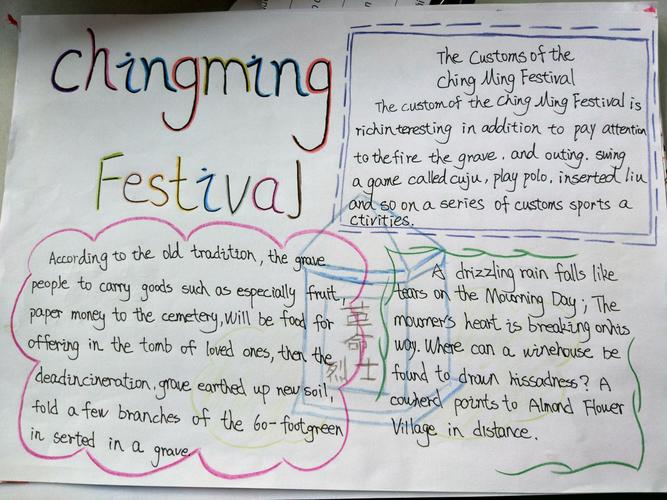 chingming
Festival
The Customs of the
Ching Ming Festival
The custom of the Ching Ming Festival is
rich interesting in addition to pay attention
to the fire the grave. and outing. swing
a game called cuju, play polo, inserted liu
and so on a series of customs sports a
ctivities.
According to the old tradition, the grave
people to carry goods such as especially fruit,
paper money to the cemetery, will be food for
offering in the tomb of loved ones, then the
deadincineration, grave earthed up new soil,
fold a few branches of the 60-footgreen
in serted in a grave.
革命
烈士
A drizzling rain falls like
tears on the Mourning Day; The
mourner's heart is breaking on his
way. Where can a winehouse be
found to drown hissadness? A
cowherd points to Almond Flower
Village in distance.